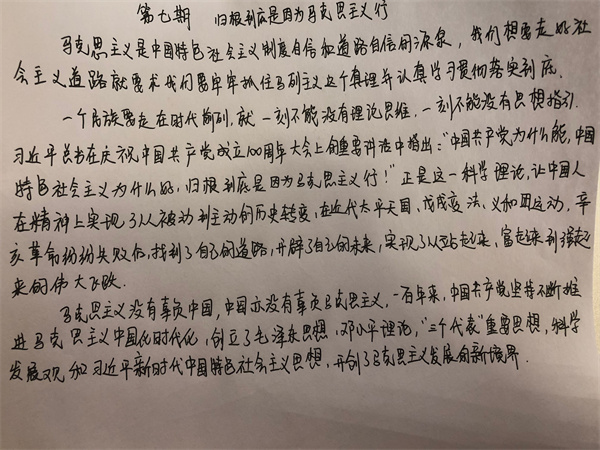 第七期 归根到底是因为马克思主义行
马克思主义是中国特色社会主义制度自信和道路自信的源泉，我们想要走好社
会主义道路就要求我们要牢牢抓住马列主义这个真理并认真学习贯彻落实到底.
一个民族要走在时代前列，就一刻不能没有理论思维，一刻不能没有思想指引.
习近平总书在庆祝中国共产党成立100周年大会上的重要讲话中指出："中国共产党为什么能，中国
特色社会主义为什么好，归根到底是因为马克思主义行！"正是这一科学理论，让中国人
在精神上实现了从被动到主动的历史转变，在近代太平天国、戊戌变法、义和团运动，辛
亥革命纷纷失败后，找到了自己的道路，开辟了自己的未来，实现了从站起来，富起来到强起
来的伟大飞跃.
马克思主义没有辜负中国，中国亦没有辜负马克思主义，一百年来，中国共产党坚持不断推
进马克思主义中国化时代化，创立了毛泽东思想，邓小平理论，"三个代表"重要思想，科学
发展观和习近平新时代中国特色社会主义思想，开创了马克思主义发展的新境界.